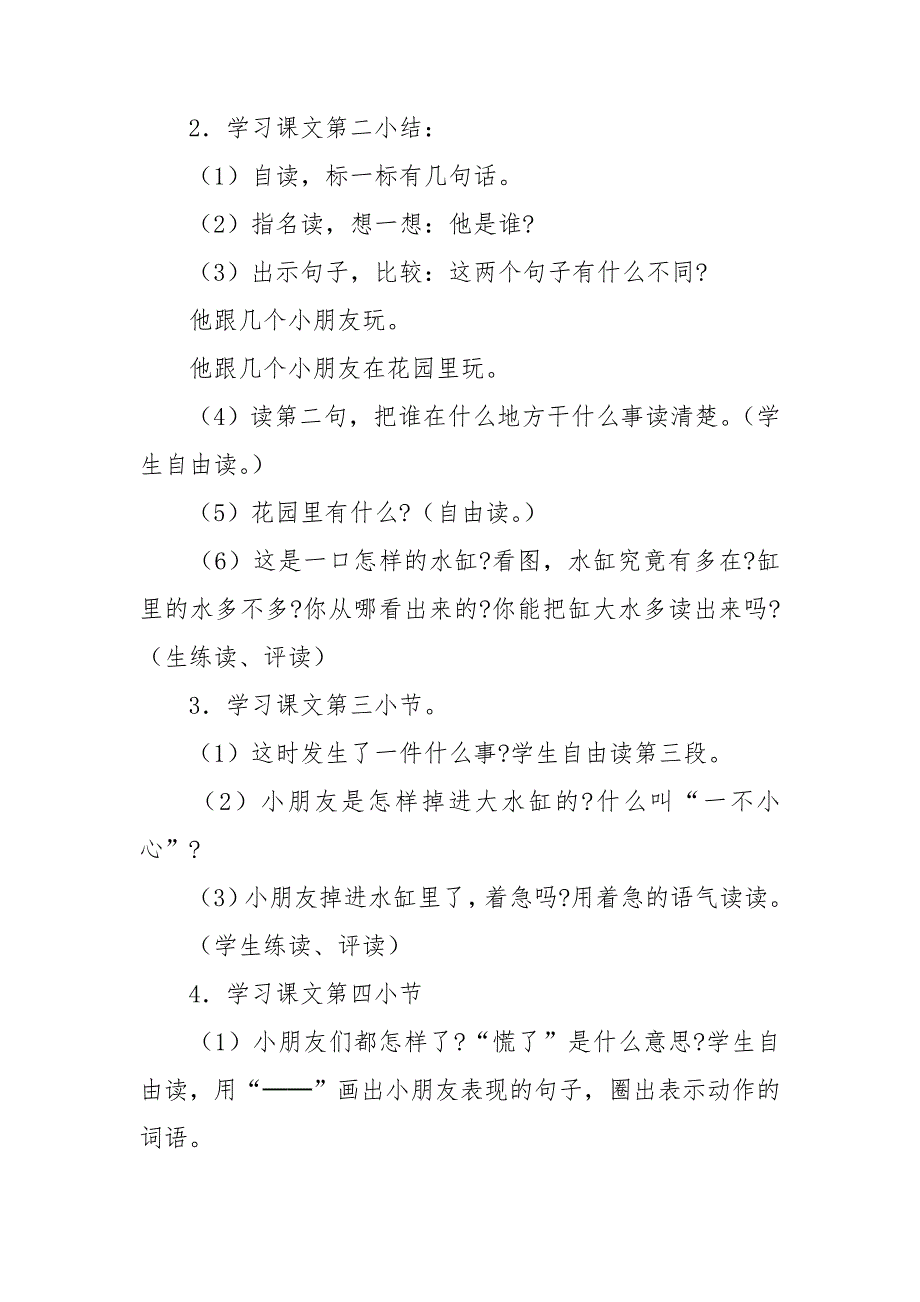 2．学习课文第二小结：
（1）自读，标一标有几句话。
（2）指名读，想一想：他是谁?
（3）出示句子，比较：这两个句子有什么不同?
他跟几个小朋友玩。
他跟几个小朋友在花园里玩。
（4）读第二句，把谁在什么地方干什么事读清楚。（学
生自由读。）
（5）花园里有什么?（自由读。）
（6）这是一口怎样的水缸?看图，水缸究竟有多在?缸
里的水多不多?你从哪看出来的?你能把缸大水多读出来吗?
（生练读、评读）
3．学习课文第三小节。
（1）这时发生了一件什么事?学生自由读第三段。
（2）小朋友是怎样掉进大水缸的?什么叫“一不小
心”?
（3）小朋友掉进水缸里了，着急吗?用着急的语气读读。
（学生练读、评读）
4．学习课文第四小节
（1）小朋友们都怎样了?“慌了”是什么意思?学生自
由读，用“——”画出小朋友表现的句子，圈出表示动作的
词语。